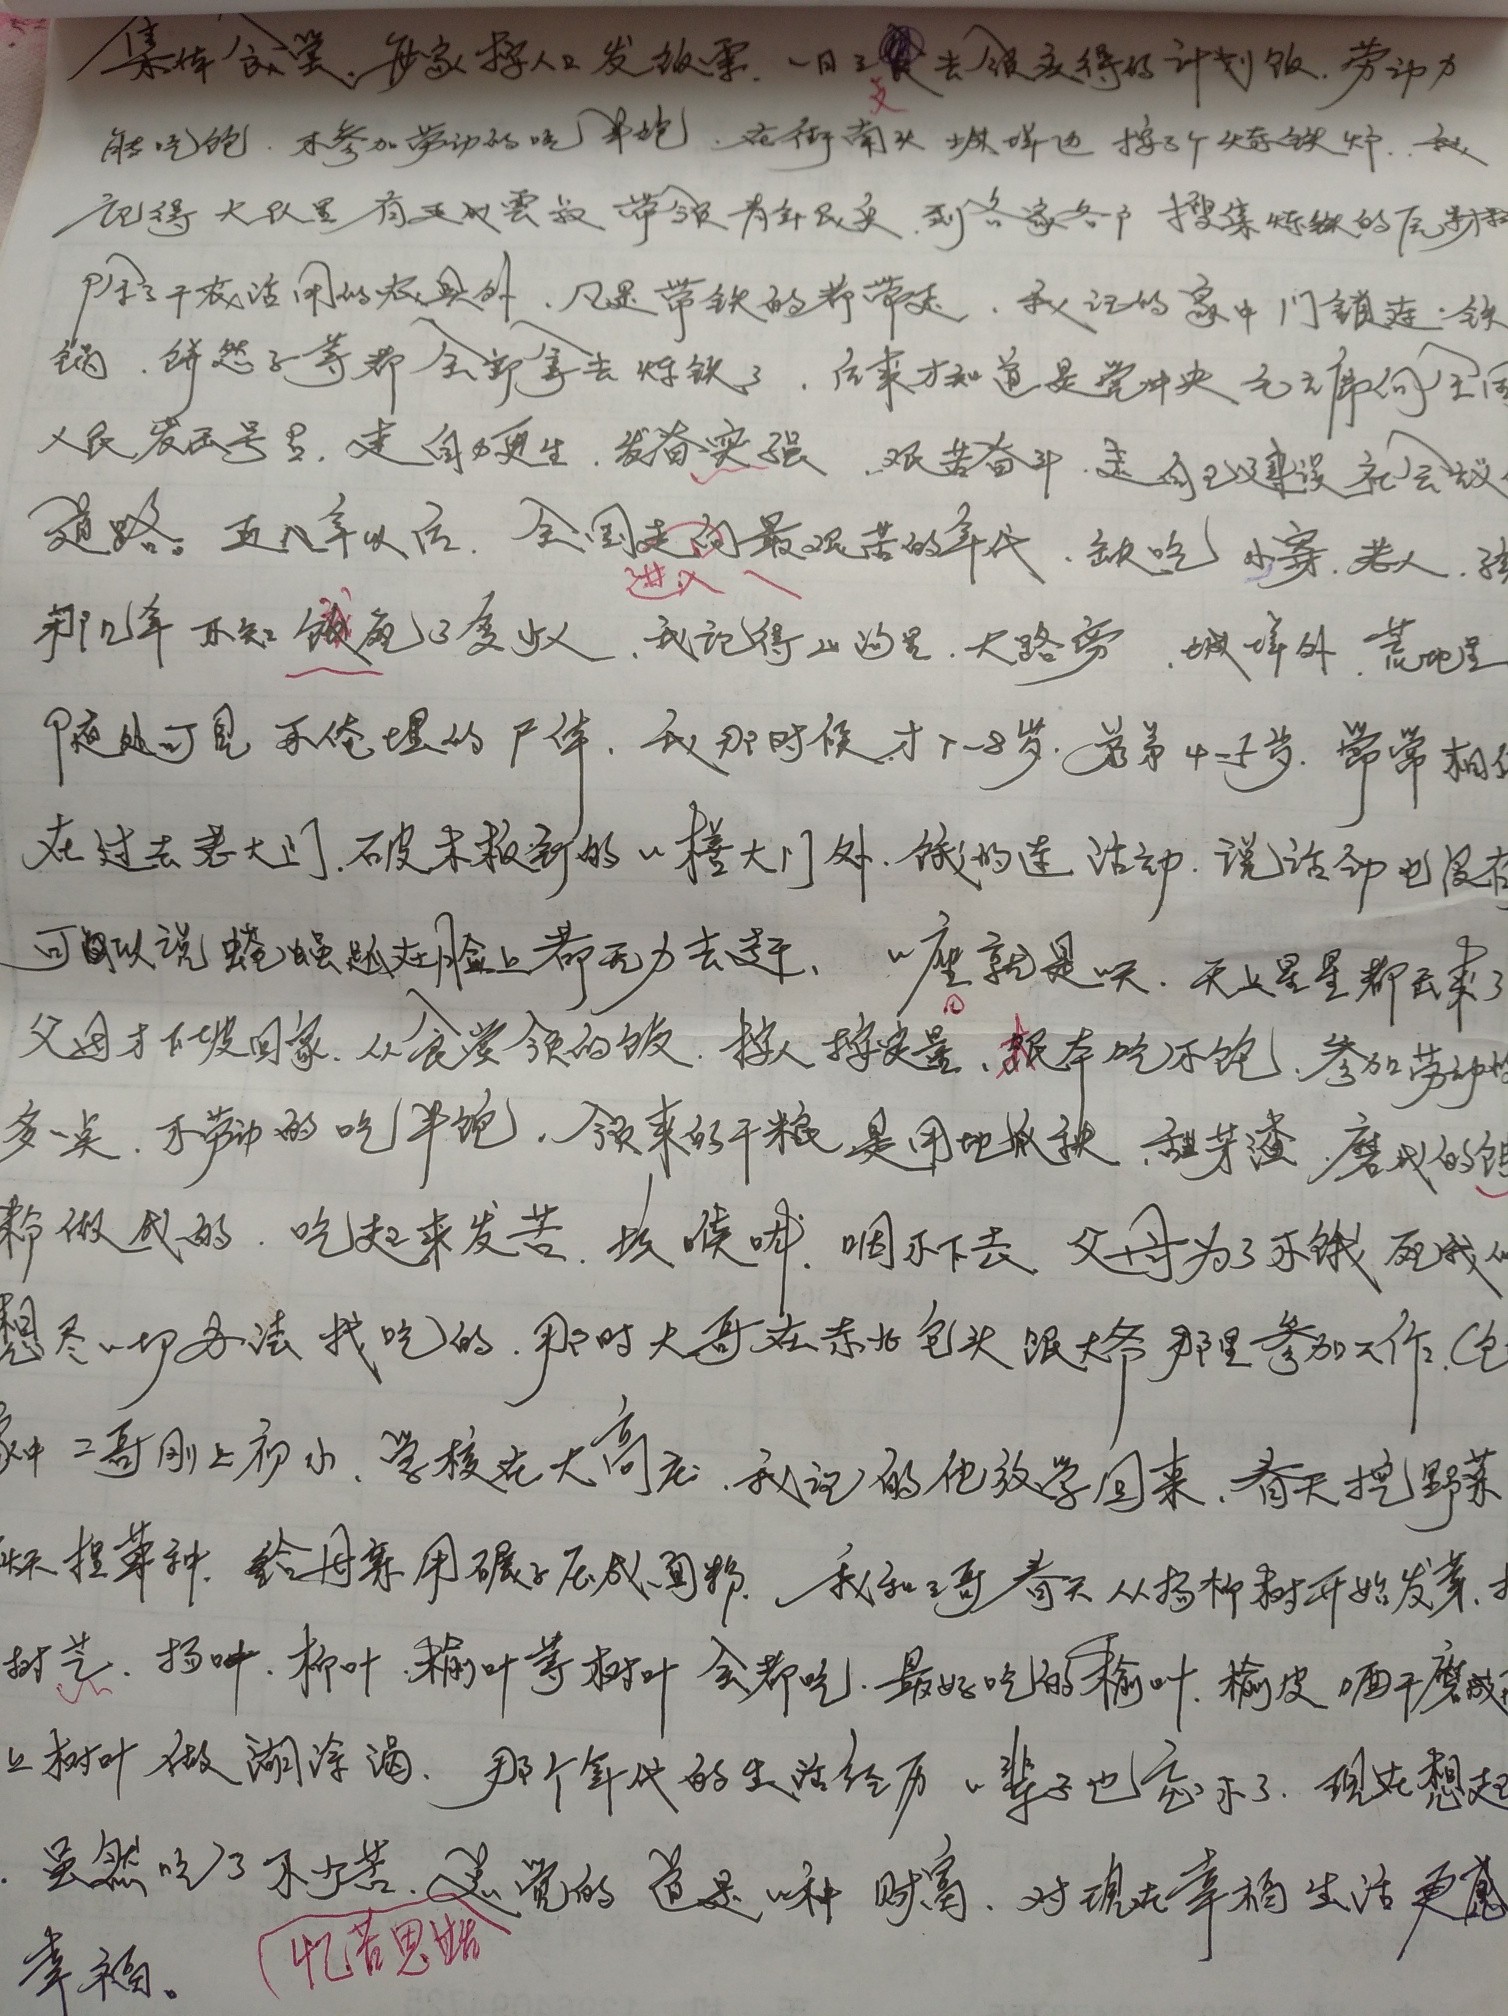 集体食堂、每家按人口发放票、一日三 去领应得的计划饭、劳动力
能吃饱、不参加劳动的吃半饱、在街南头 城墙边 按了个炼铁炉、我
记得大队里有 云叔 带领青年民兵、到各家各户 搜集炼铁的原材料
除了干农活用的农具外、凡是带铁的都带走、我记的家中门锁连、铁
锅、饼 子等都全部拿去炼铁了、后来才知道是党中央毛主席向全国
人民发出号召、走自力更生、发奋 强 艰苦奋斗、走自己建设社会
道路。五八年以后、全国走向最艰苦的年代、缺吃少穿、老人、孩
进入
那几年不知饿死了多少人、我记得山沟里、大路旁、城墙外、荒地里
随处可见 不 的尸体、我那时候才7-8岁、弟弟4-5岁、常常相
在过去老大门、破木板 的一样大门外、饿的连活动、说话都也没有
可以说苍蝇趴在脸上都无力去赶、一座就是一天、天上星星都出来了
父母才下坡回家、从食堂领的饭、按人按定量、根本吃不饱、参加劳动的
多一点、不劳动的吃半饱、领来的干粮是用地瓜秧、 芽渣、磨成的
粉做成的、吃起来发苦、 喉咙、咽不下去、父母为了不饿死我们
想尽一切办法找吃的、那时大哥在东北包头跟大爷那里参加工作、(包
家中二哥刚上初小、学校在大高庄、我记的他放学回来、春天挖野菜
秋天捏草种、给母亲用碾子压成面粉、我和二哥春天从杨柳树开始发芽、
树芒、扬叶、柳叶、榆叶等树叶全都吃、最好吃的榆叶、榆皮晒干磨成
上树叶做湖涂渴、那个年代的生活经历一辈子也忘不了、现在想起
、虽然吃了不少苦、感觉的 是一种财富、对现在幸福生活更感
忆苦思甜
幸福。